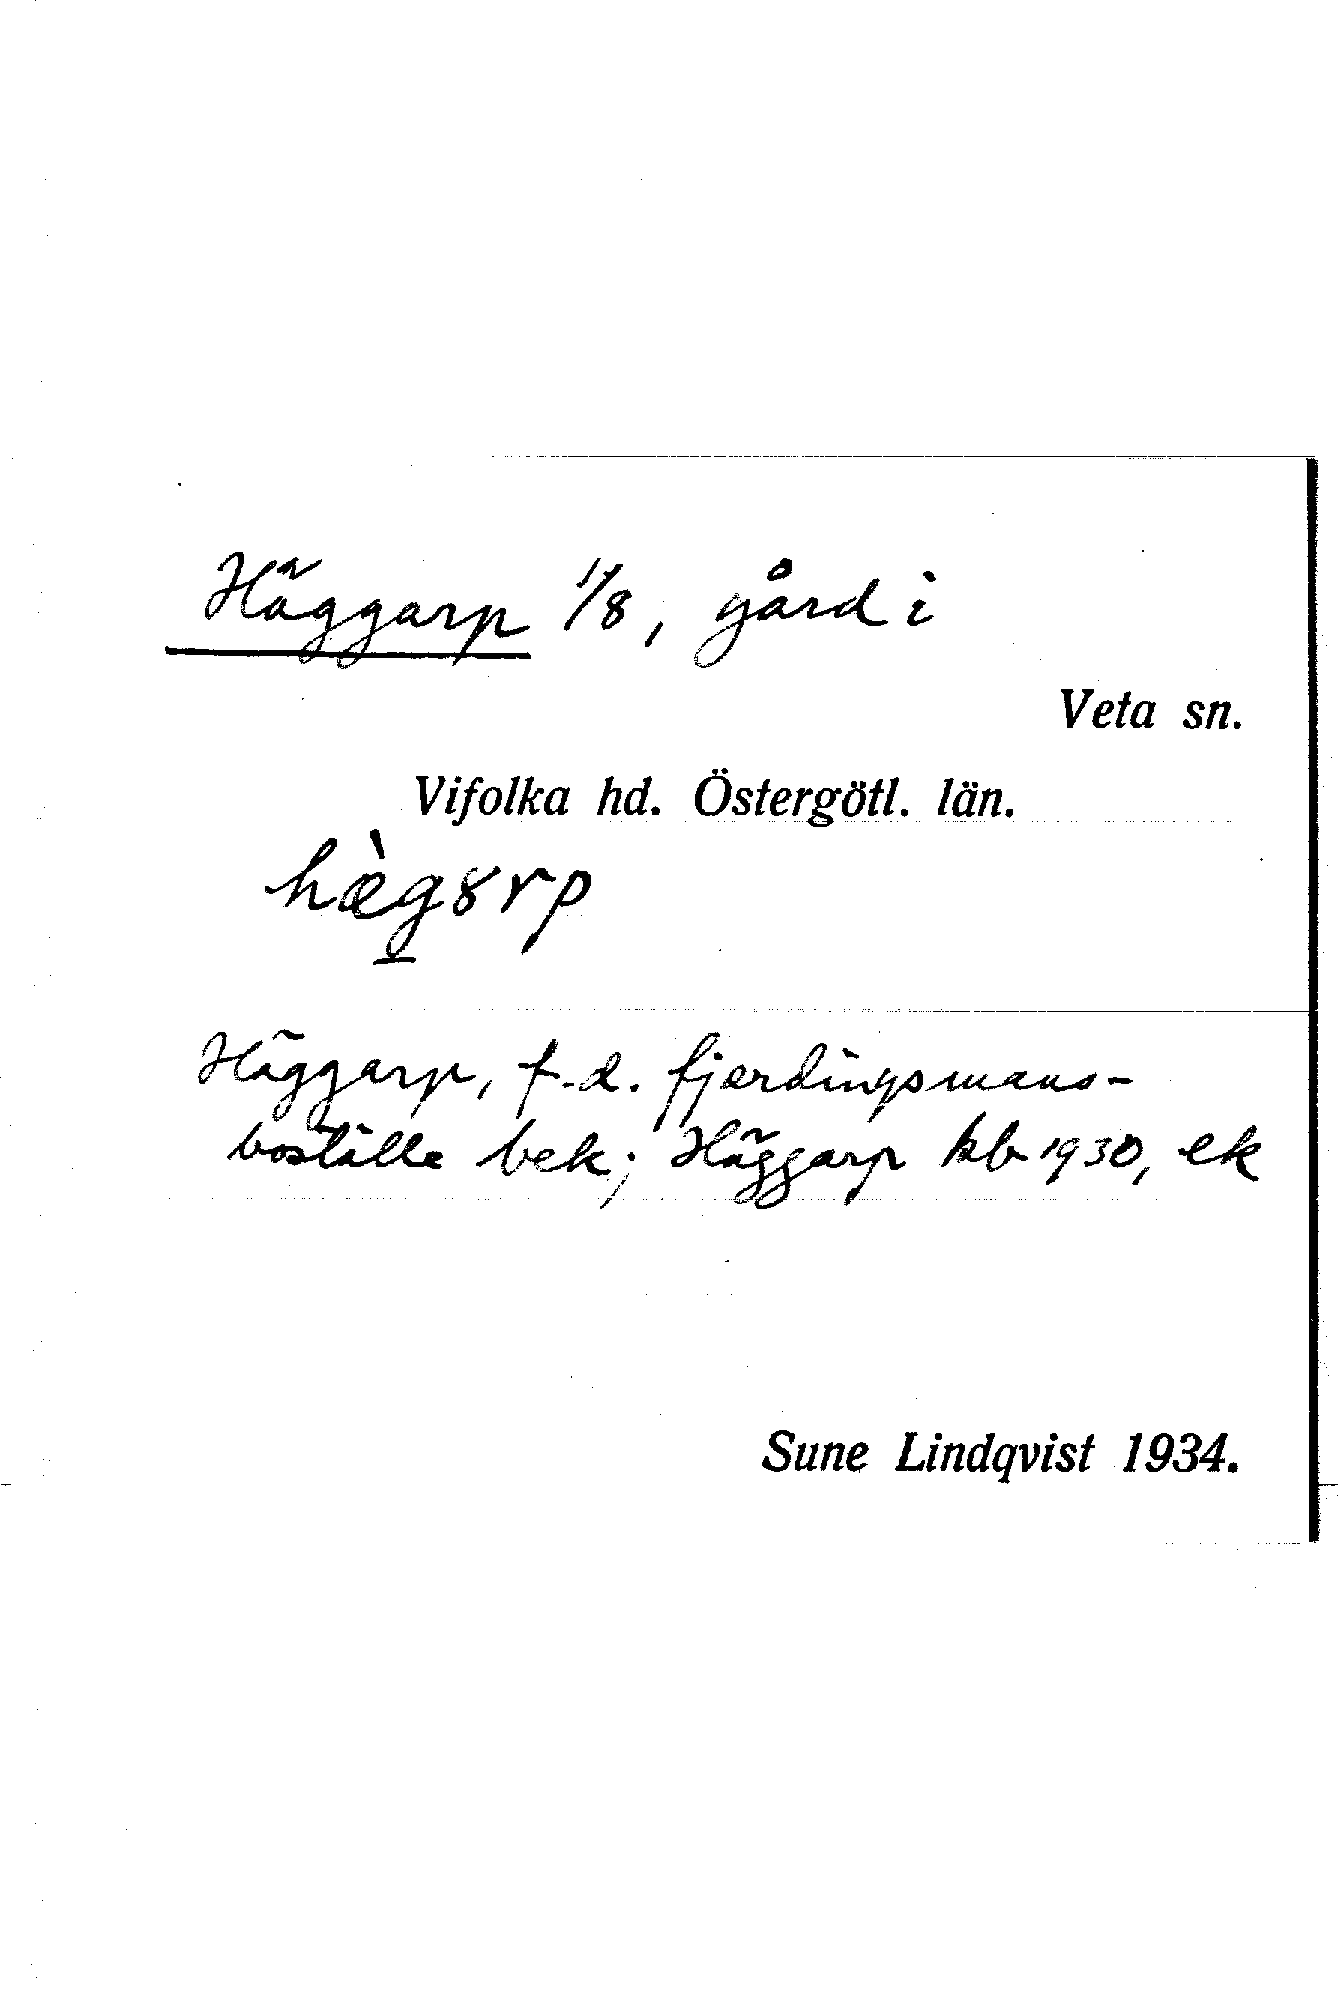 Häggarp 1/8, gård i
Veta sn.
Vifolka hd. Östergötl. län.
hæ̀g̲ȣrp
Häggarp, f.d. fjerdingsmans-
boställe bek; Häggarp kb 1930, ek
Sune Lindqvist 1934.